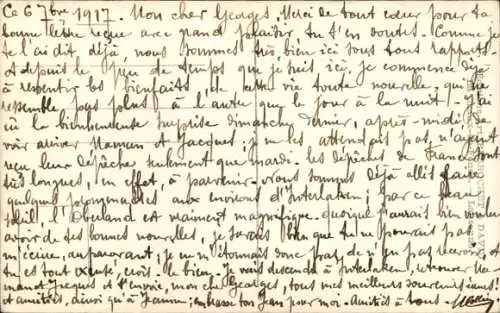 Ce 6 7bre 1917. Mon cher Georges, Merci de tout cœur pour ta
bonne lettre reçue avec grand plaisir, tu t'en doutes. Comme je
te l'ai dit déjà, nous sommes très bien ici sous tous rapports
et depuis le peu de temps que je suis ici, je commence déjà
à ressentir les bienfaits de cette vie toute nouvelle, qui ne
ressemble pas plus à l'autre que le jour à la nuit. J'ai
eu la bienheureuse surprise dimanche dernier, après-midi, de
voir arriver Maman et Jacques; je ne les attendais pas, n'ayant
reçu leur dépêche seulement que mardi. les dépêches de France sont
très longues, en effet, à parvenir. nous sommes déjà allés faire
quelques promenades aux environs d'Interlaken; par ce beau
soleil, l'Oberland est vraiment magnifique. quoique j'aurais bien voulu
avoir de tes bonnes nouvelles, je savais bien que tu ne pourrais pas
m'écrire, auparavant, je ne m'étonnais donc pas de n'en pas recevoir et
tu es tout excusé, crois-le bien. Je vais descendre à Interlaken, retrouver Ma-
man et Jacques et t'envoie, mon cher Georges, tous mes meilleurs souvenirs
et amitiés, ainsi qu'à Jeanne; embrasse ton Jean pour moi. Amitiés à tous.